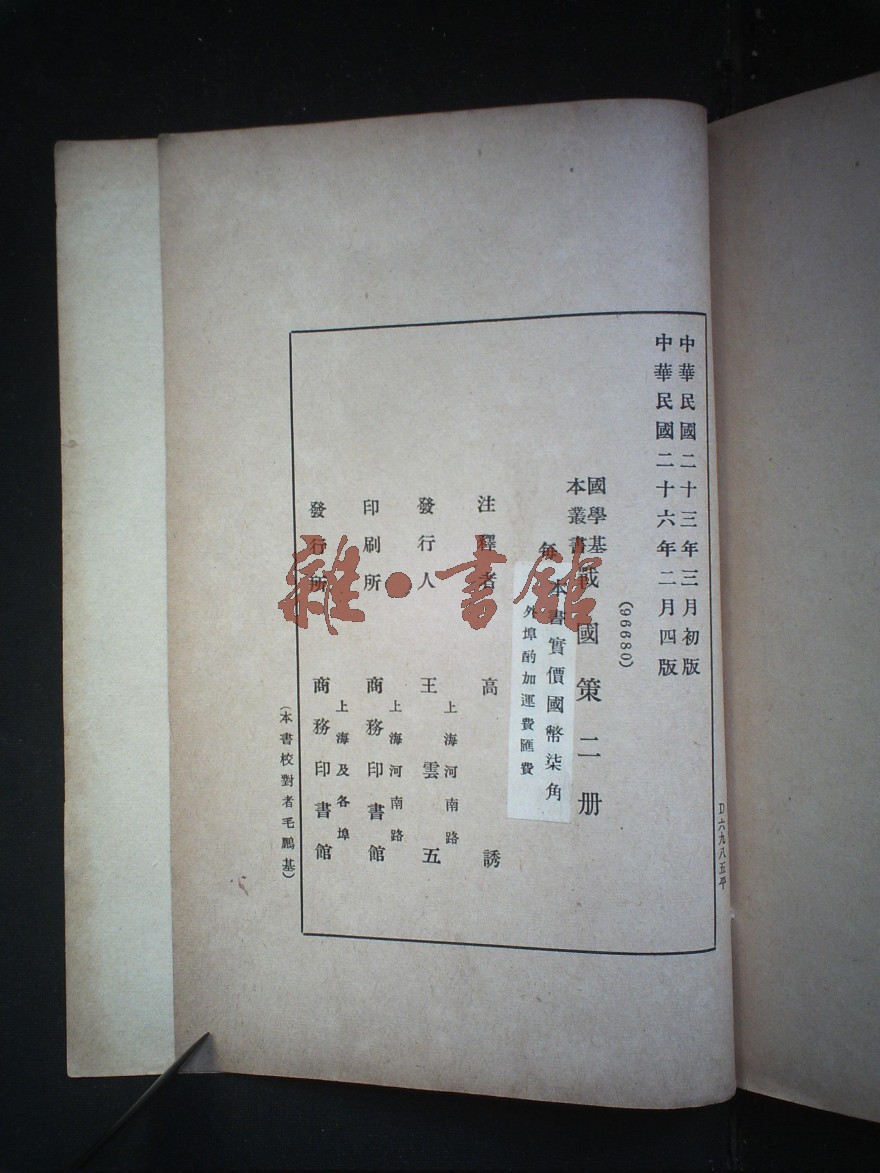 中華民國二十三年三月初版
中華民國二十六年二月四版
(96680)
國學基
本叢書
戰國策二册
每
本書實價國幣柒角
外埠酌加運費匯費
注釋者 高誘
發行人 王雲五
上海河南路
印刷所 商務印書館
上海河南路
發行所 商務印書館
上海及各埠
(本書校對者毛鵬基)
D六九八五平
雜·書館